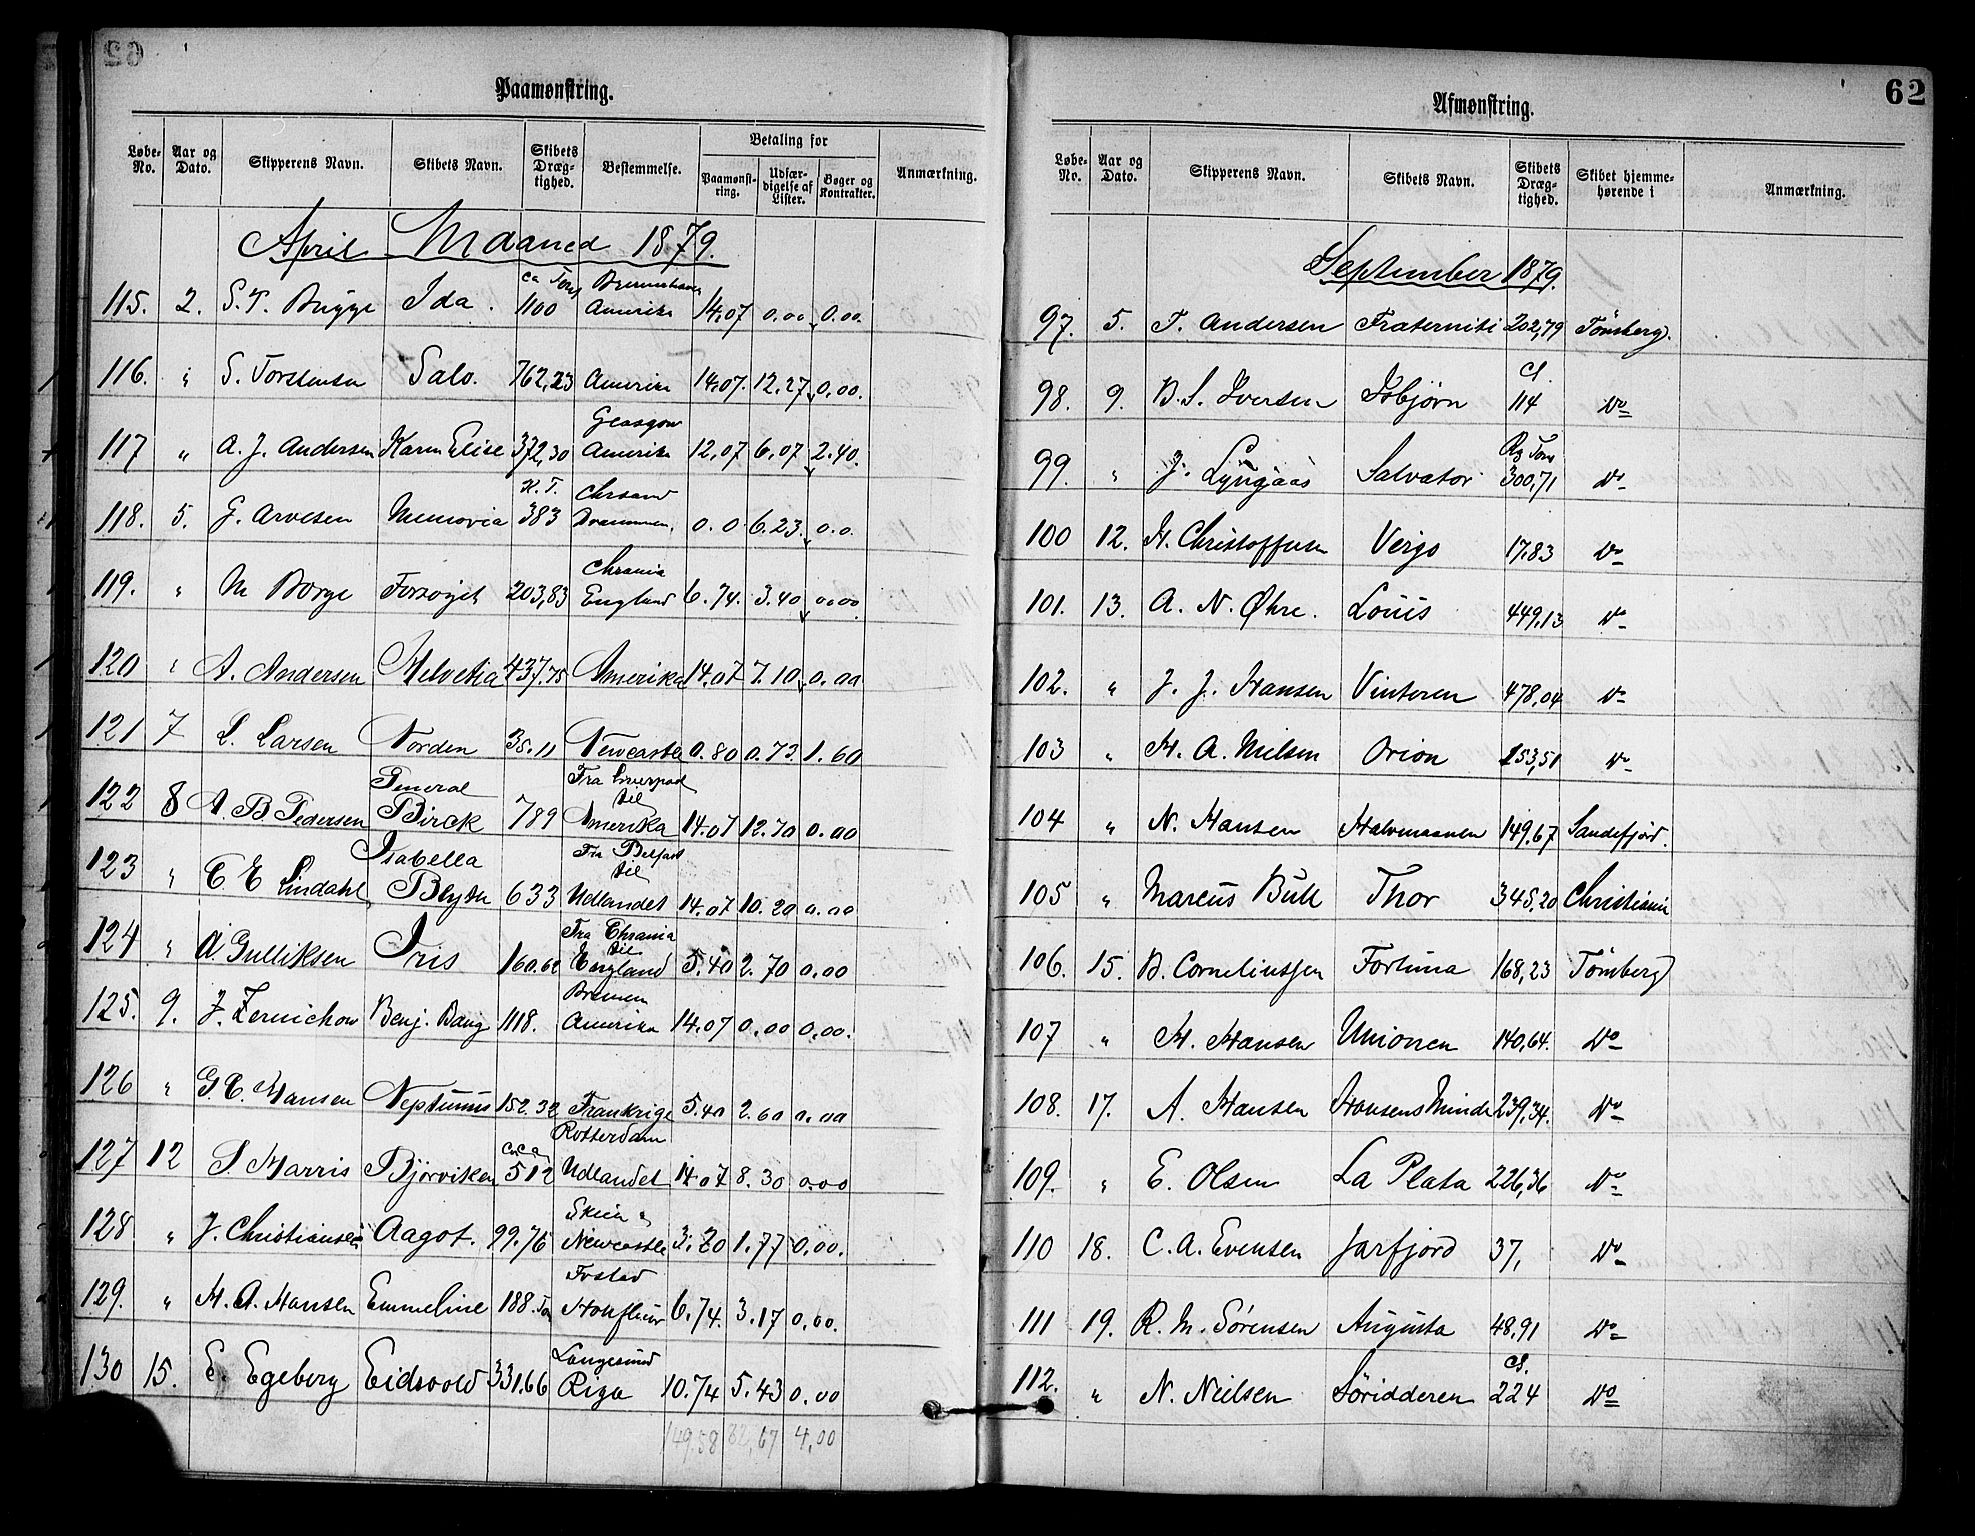 62
Paamønstring.
Løbe-No. Aar og Dato. Skipperens Navn. Skibets Navn. Skibets Dræg-tighed. Bestemmelse. Betaling for Paamønst-ring. Udfær-digelse af Lister. Bøger og Kontrakter. Anmærkning.
April Maaned 1879.
115. 2. S. T. Bugge Ida. ca Tons 1100 Bremerhaven Amerika 14,07 0.00 0.00.
116. " S. Torstensen Salo. 762,23 Amerika 14,07. 12.27 0,00.
117 " A. J. Andersen Karen Elise 372,30 Glasgow Amerika 12,07 6,07 2.40.
118. 5. G. Arvesen Memovia K. T. 383 Chrsand Drammen, 0.0 6.23. 0.0.
119. " M Borge Forsøget 203,83 Chrania England 6.74. 3.40 0.00
120 " A. Andersen Helvetia 437.75 Amerika 14.07 7.10 0.00
121 7 L. Larsen Norden 35.11 Newcastle 0.80 0.73. 1.60
122 8 A B Pedersen General Birck 789 Fra Liverpool til Amerika 14.07 12.70 0.00
123 " C E Lindahl Isabella Blyth 633 Fra Belfast til Udlandet 14.07 10.20 0.00
124 " A. Gulliksen Iris 160.62 Fra Chrania til England 5.40 2.70 0.00
125. 9. J. Zernichow Benj. Bang 1118. Bremen Amerika 14.07 0.00 0.00.
126 " G. C. Hansen Neptunus 152.32 Frankrige 5.40 2.60 0.00
127 12 S. Harris Bjørviken Ca 512 Rotterdam Udlandet 14.07 8.30 0.00
128 " J. Christiansen Aagot. 99.76 Skien " Newcastle 3.20 1.77 0.00.
129. " H. A. Hansen Emmeline 188. Ton Honfleur 6.74. 3.17 0.00.
130 15. E. Egeberg Eidsvold 331,66 Langesund Riga 10.74 5.43 0.00
149.58 82,67 4,00
62
Afmønstring.
Løbe-No. Aar og Dato. Skipperens Navn. Skibets Navn. Skibets Dræg-tighed. Skibet hjemme-hørende i Anmærkning.
September 1879.
97. 5. T. Andersen Fraterniti 202,79 Tønsberg.
98. 9. B. S. Iversen Isbjørn Cl. 114 Do
99. " J. Lyngaas Salvator Rg Tons 300,71 Do
100 12. H. Christoffersen Vergo 17.83 Do
101. 13. A. N. Øhre. Louis 449,13 Do
102. " J. J. Hansen Vinteren 478,04 Do
103 " H. A. Nielsen Orion 253,51 Do
104 " N. Hansen Halvmaanen 149.67 Sandefjord.
105 " Marcus Bull Thor 345,20 Christiania
106. 15. B. Corneliussen Fortuna 168,23 Tønsberg
107 " H. Hansen Unionen 140,64. Do
108. 17. A. Hansen Hansens Minde 239,34. Do
109. " E. Olsen La Plata 226,36 Do
110 18. C. A. Evensen Jarfjord 37, Do
111 19. R. M. Sörensen Augusta 48,91 Do
112. " N. Nielsen Söridderen Cl. 224 Do